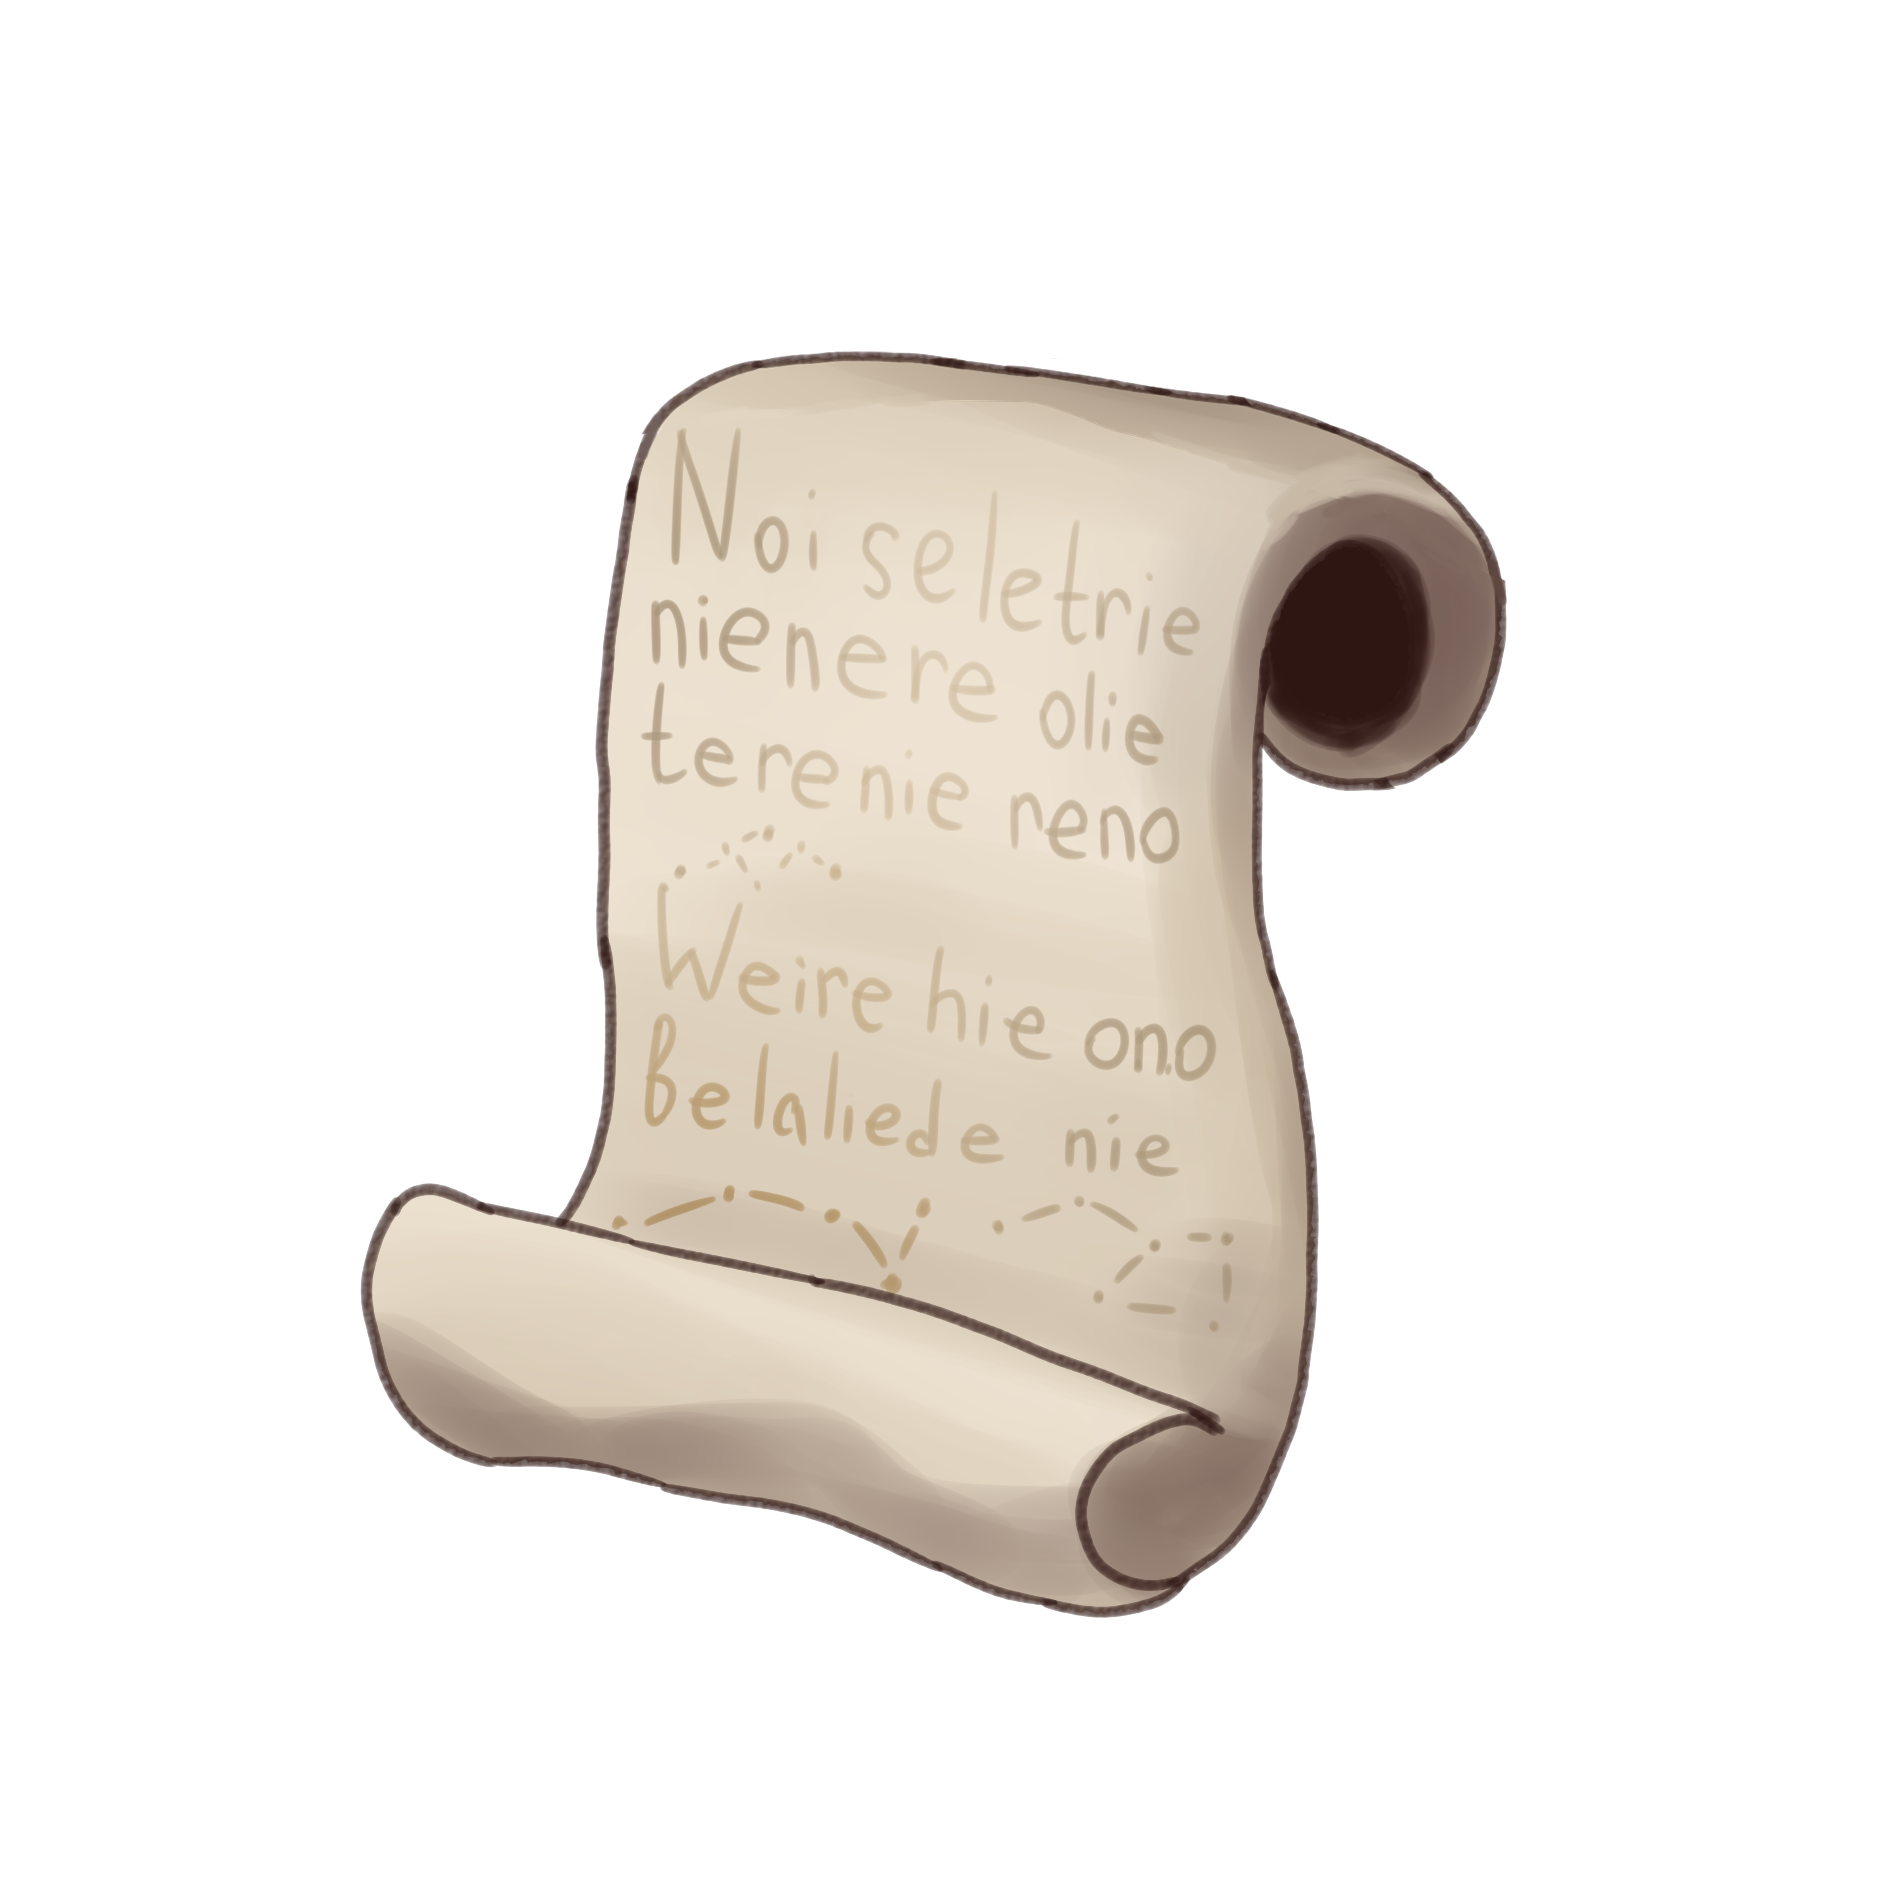 Noi seletrie
nienere olie
terenie reno
Weire hie ono
Belaliede nie